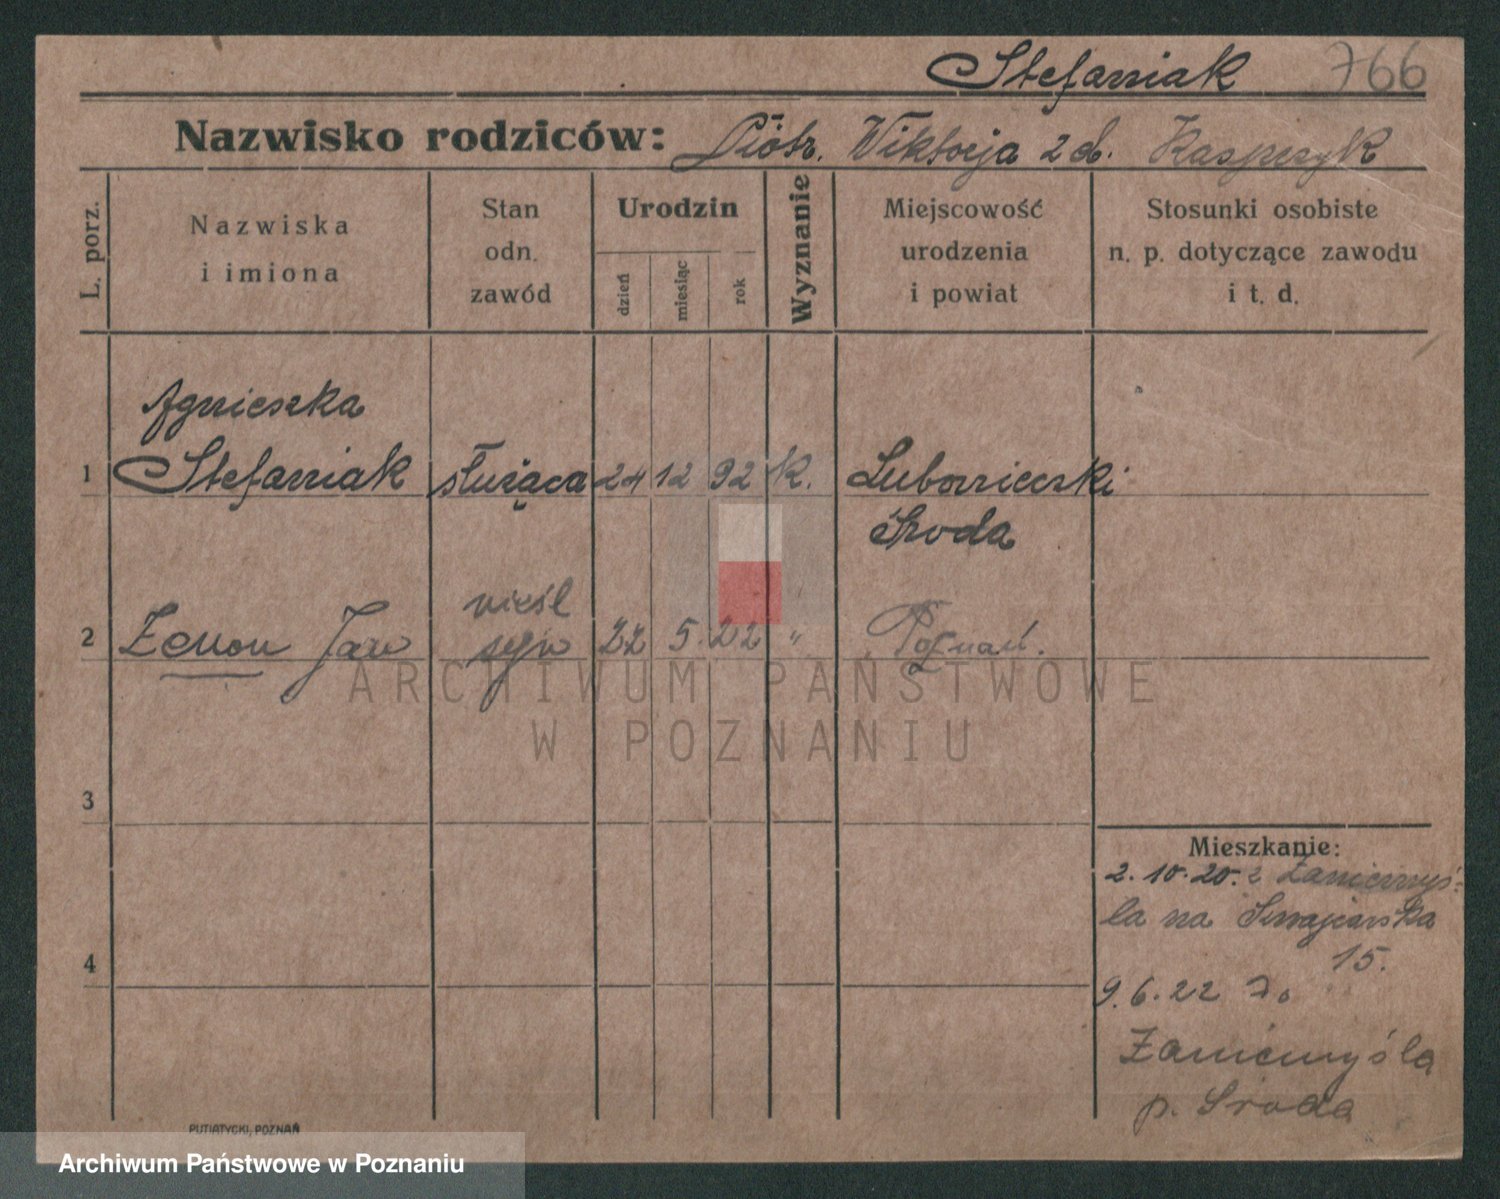 Stefaniak 766
Nazwisko rodziców: Piótr. Wiktorja z d. Kasprzyk
L. porz.
Nazwiska
i imiona
Stan
odn.
zawód
Urodzin
dzień
miesiąc
rok
Wyznanie
Miejscowość
urodzenia
i powiat
Stosunki osobiste
n. p. dotyczące zawodu
i t. d.
Agnieszka
1 Stefaniak służąca 24 12 92 k.
Środa
nieśl
2 Zenon Jan syn 22 5. 22 " Poznań.
ARCHIWUM PAŃSTWOWE
W POZNANIU
3
Mieszkanie:
2. 10. 20. z Zaniemyś-
la na Szwajcarska
15.
4
9. 6. 22 do
Zaniemyśla
p. Środa
PUTIATYCKI, POZNAŃ
Archiwum Państwowe w Poznaniu